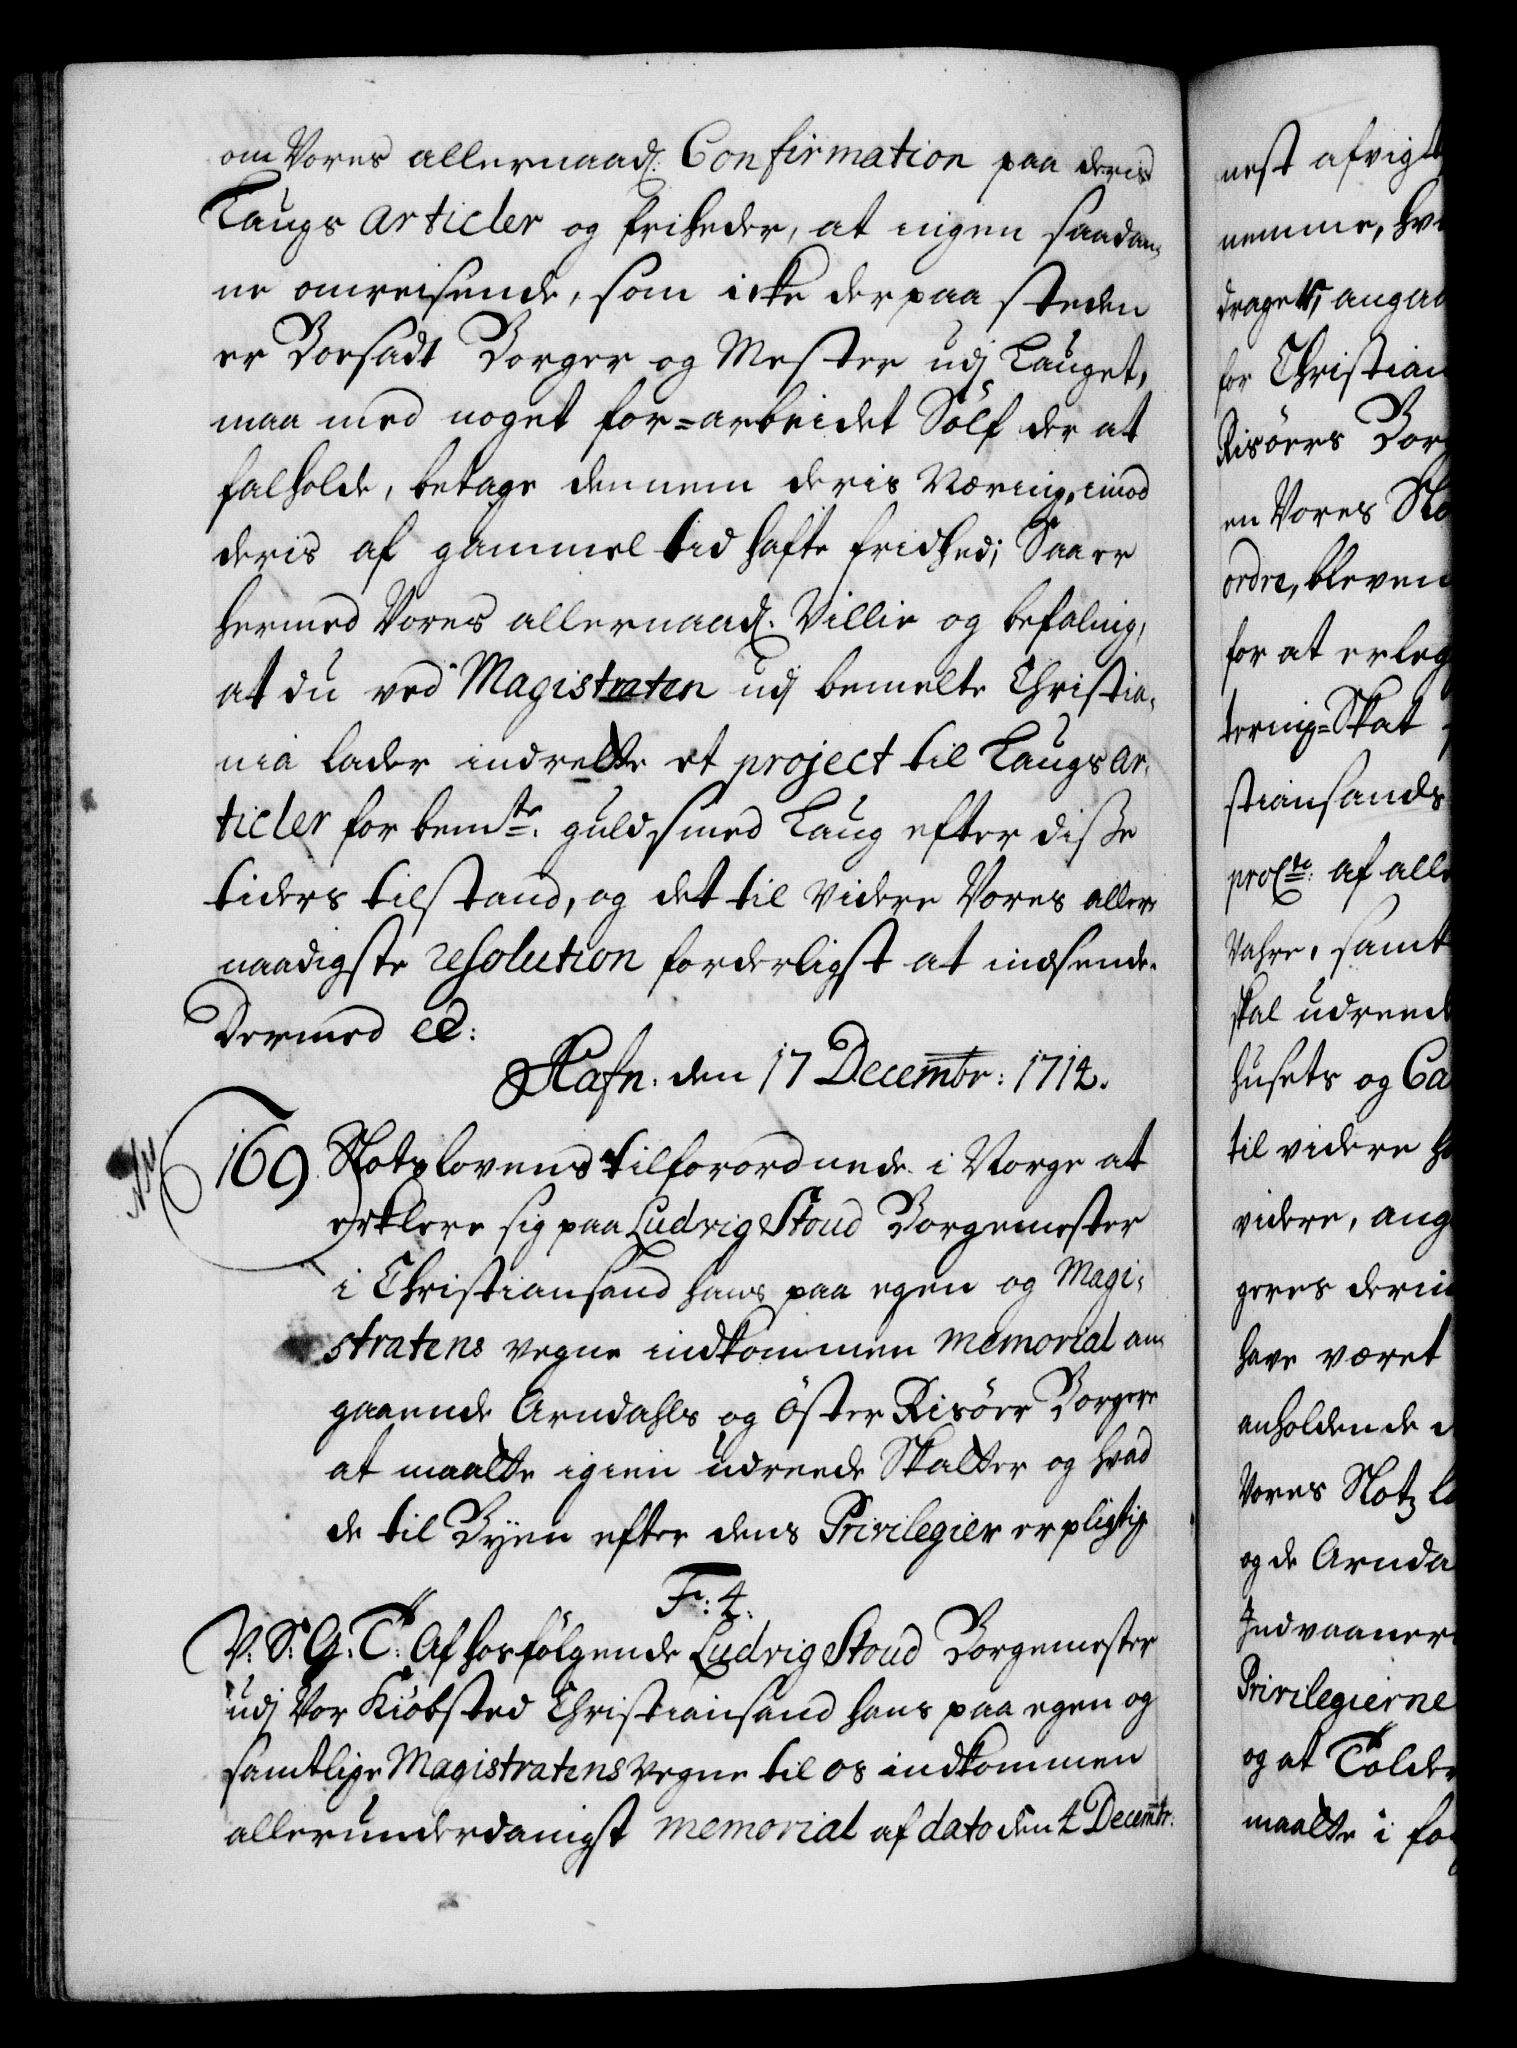 om Vores allernaad. Confirmation paa deris
Laugs Articler og friheder, at ingen saadan-
ne omreisende, som icke der paa steden
er Boesadt Borger og Mester udj Lauget,
maa med noget for=arbeidet Sölf der at
falholde, betage dennem deris Næring, imod
deris af gammel tid hafte fridhed; Saa er
hermed Vores allernaad. Villie og befaling,
at du ved Magistraten udj bemelte Christia-
nia lader indrette et project til Laugs Ar-
ticler for bemte. guldsmed Laug efter disse
tiders tilstand, og det til Videre Vores aller-
naadigste resolution forderligst at indsende.
Dermed etc:
Hafn. den 17 Decembr: 1712.
169 Slotzlovens tilforordnede i Norge at
erklere sig paa Ludvig Stoud Borgemester
i Christiansand hans paa egen og Magi-
stratens vegne indkommen memorial an-
gaaende Arndahls og Öster Risöer Borgere
at maatte igien udreede Skatter og hvad
de til Byen efter dens Privilegier er pligtig
F: 4.
V: S: G: T: Af hosfölgende Ludvig Stoud Borgemester
udj Vor Kiöbsted Christiansand hans paa egen og
samtlige Magistratens Vegne til os indkommen
allerunderdanigst memorial af dato den 4 Decembr:
nest afvigt
nemme, hv
drager, angaa
for Christian
Risöers Borg
en Vores Slo
ordre, bleven
for at erleg
tering=Skat
stiansands
proCto: af alle
Vahre, samt
skal udreed
husets og Ca
til videre h
videre, ang
geres deri
have været
anholdende
Vores Slotz lo
og de Arnda
Indvaaner
Privilegierne
og at Tolder
maatte i fo